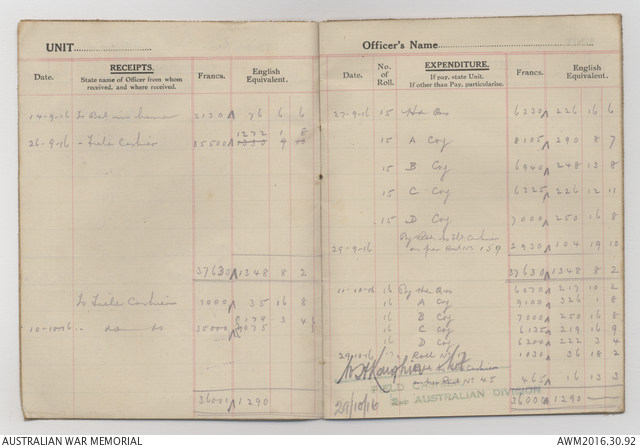 UNIT
Officer's Name
RECEIPTS.
Date.
State name of Officer from whom received, and where received.
Francs.
English Equivalent.
14-9-16 To Bal in hand 2130 76 6 6
26-9-16 - Field Cashier 35500 1272 1 8
37630 1348 8 2
To Field Cashier 1000 35 16 8
10-10-16 do do 35000
36000 1290
EXPENDITURE.
Date.
No. of Roll.
If pay, state Unit.
If other than Pay, particularise.
Francs.
English Equivalent.
27-9-16 15 Hd Qrs 6330 226 16 6
15 A Coy 8105 290 8 7
15 B Coy 6940 248 13 8
15 C Coy 6325 226 12 11
15 D Coy 7000 250 16 8
29-9-16 2930 104 19 10
37630 1348 8 2
11-10-16 16 By Hd Qrs 6070 217 10 2
16 A Coy 9100 326 1 8
16 B Coy 7000 250 16 8
16 C Coy 6135 219 16 9
16 D Coy 6200 222 3 4
29-10-16 17 Roll No 17 1030 36 18 2
Cashier
No 45 465 16 13 3
FIELD CASHIER
2ND AUSTRALIAN DIVISION
29/10/16
36000 1290
AUSTRALIAN WAR MEMORIAL
AWM2016.30.92